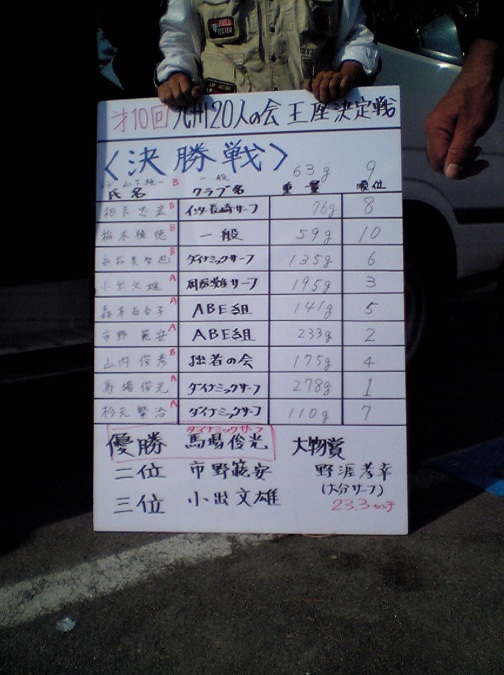 才10回 九州120人の会 王座決定戦
〈決勝戦〉
山下純一 B 一般 63g 9
氏名 クラブ名 重量 順位
相良忠宏 B インター長崎サーフ 76g 8
B 一般 59g 10
B ダイナミックサーフ 135g 6
小出文雄 A サーフ 195g 3
森本百合子 A ABE組 141g 5
市野範安 A ABE組 233g 2
山内俊彦 B 拙者の会 175g 4
馬場俊光 A ダイナミックサーフ 278g 1
杉元繁治 A ダイナミックサーフ 110g 7
ダイナミックサーフ
優勝 馬場俊光 大物賞
二位 市野範安 野涯孝幸
三位 小出文雄 (大分サーフ)
23.3センチ